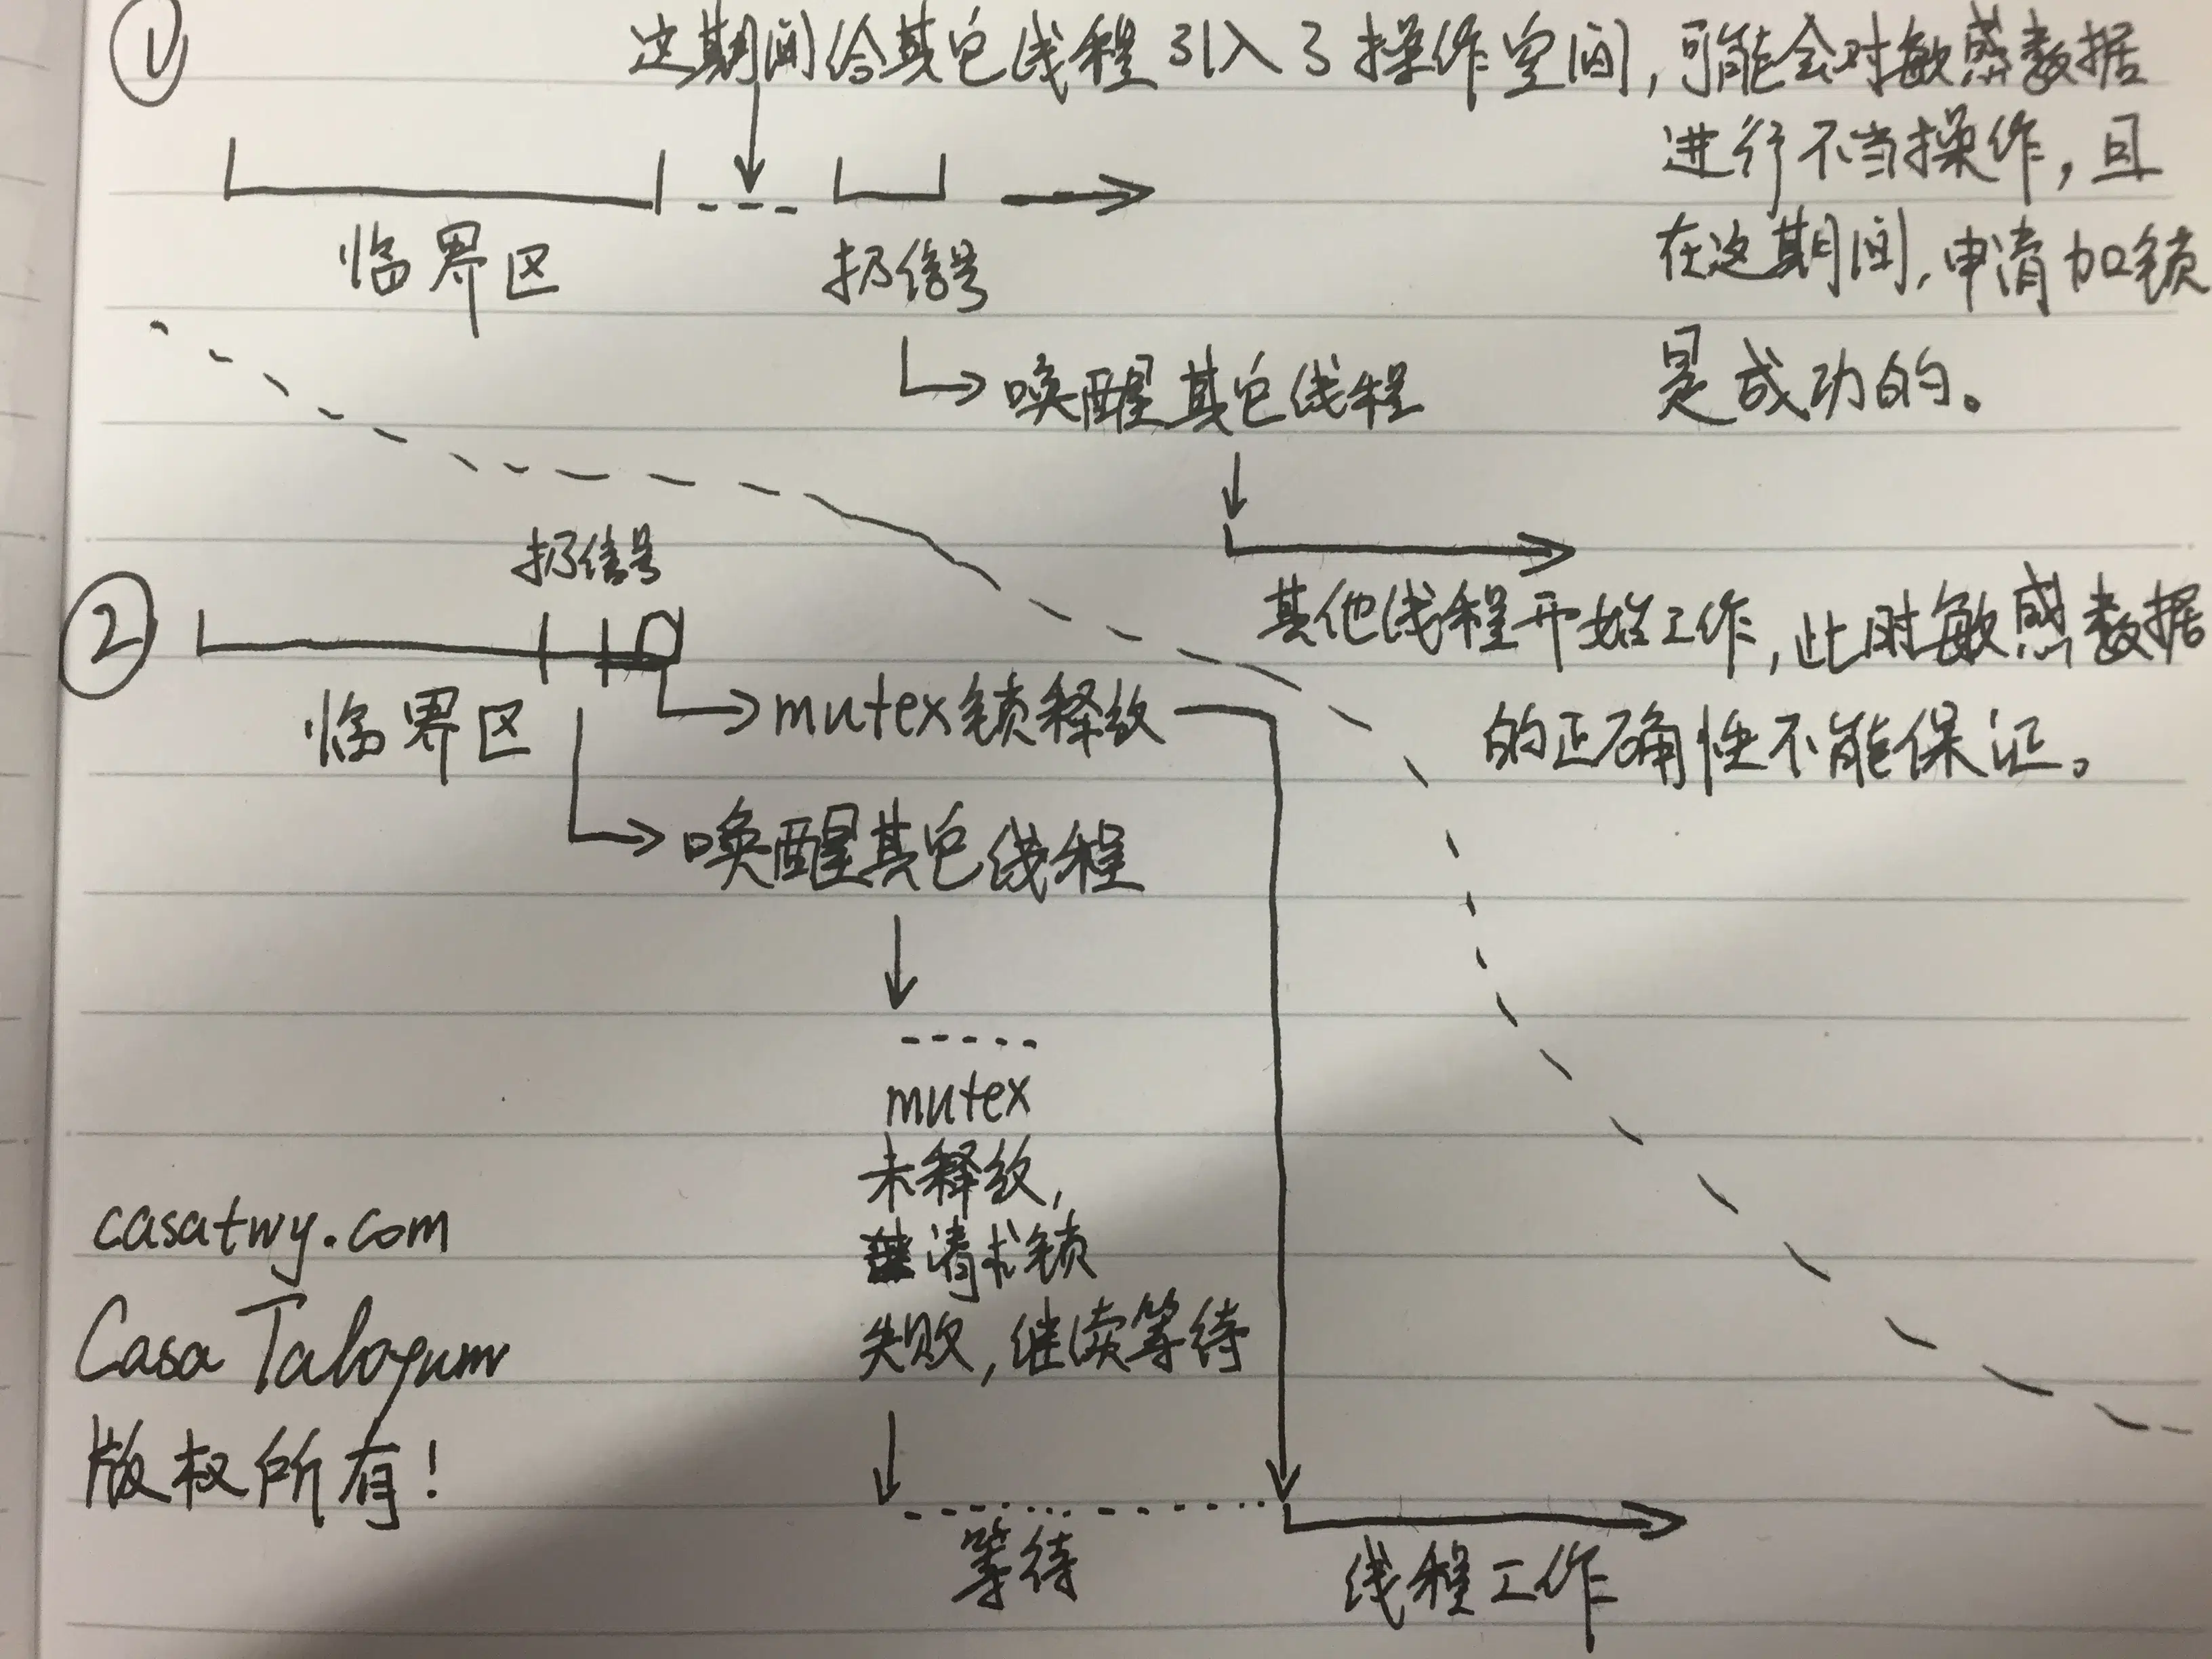 ①
这期间给其它线程引入了操作空间,可能会对敏感数据
进行不当操作,且
在这期间,申请加锁
是成功的。
临界区
扔信号
唤醒其它线程
其他线程开始工作,此时敏感数据
的正确性不能保证。
②
扔信号
临界区
mutex锁释放
唤醒其它线程
mutex
未释放,
请求锁
失败,继续等待
等待
线程工作
casatwy.com
Casa Taloyum
版权所有!